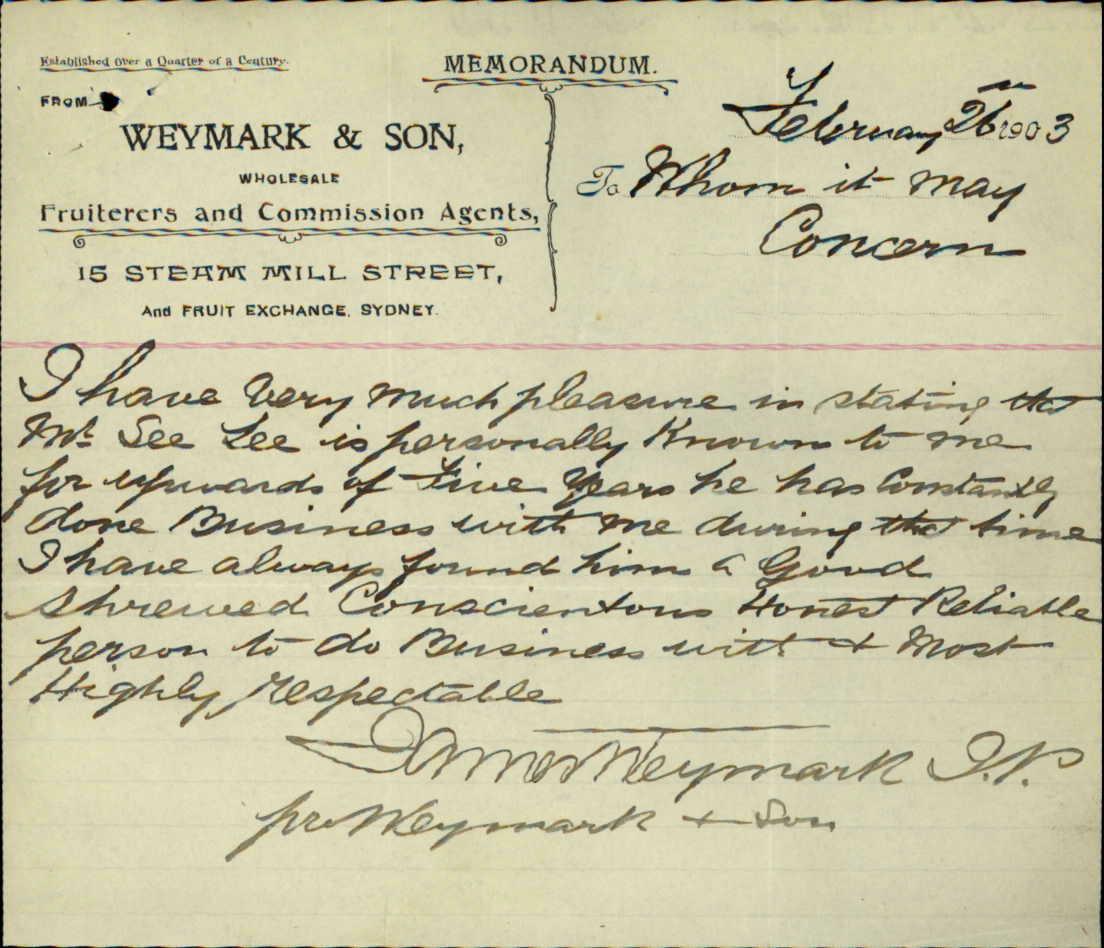 Established Over a Quarter of a Century.
MEMORANDUM.
FROM
WEYMARK & SON,
WHOLESALE
Fruiterers and Commission Agents,
15 STEAM MILL STREET,
And FRUIT EXCHANGE, SYDNEY.
February 26th 1903
To Whom it may
Concern
I have Very much pleasure in stating that
Mr See Lee is personally Known to me
for upwards of Five Years he has Constantly
done Business with me during that time
I have always found him a Good
Shrewed Conscientous Honest Reliable
person to do Business with & Most
Highly respectable
James Weymark J.P.
pro Weymark & Son